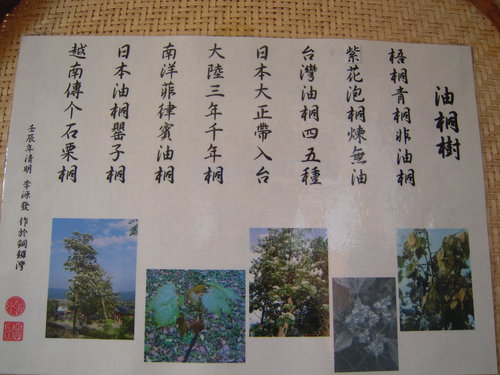 油桐樹
梧桐青桐非油桐
紫花泡桐煉無油
台灣油桐四五種
日本大正帶入台
大陸三年千年桐
南洋菲律賓油桐
日本油桐罌子桐
越南傳个石栗桐
壬辰年清明 李源發 作於銅鑼灣